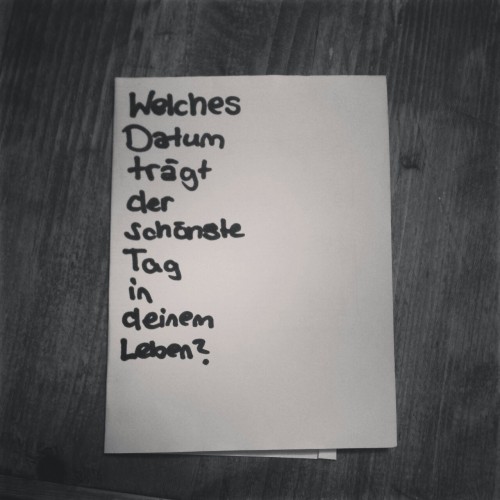 Welches
Datum
trägt
der
schönste
Tag
in
deinem
Leben?